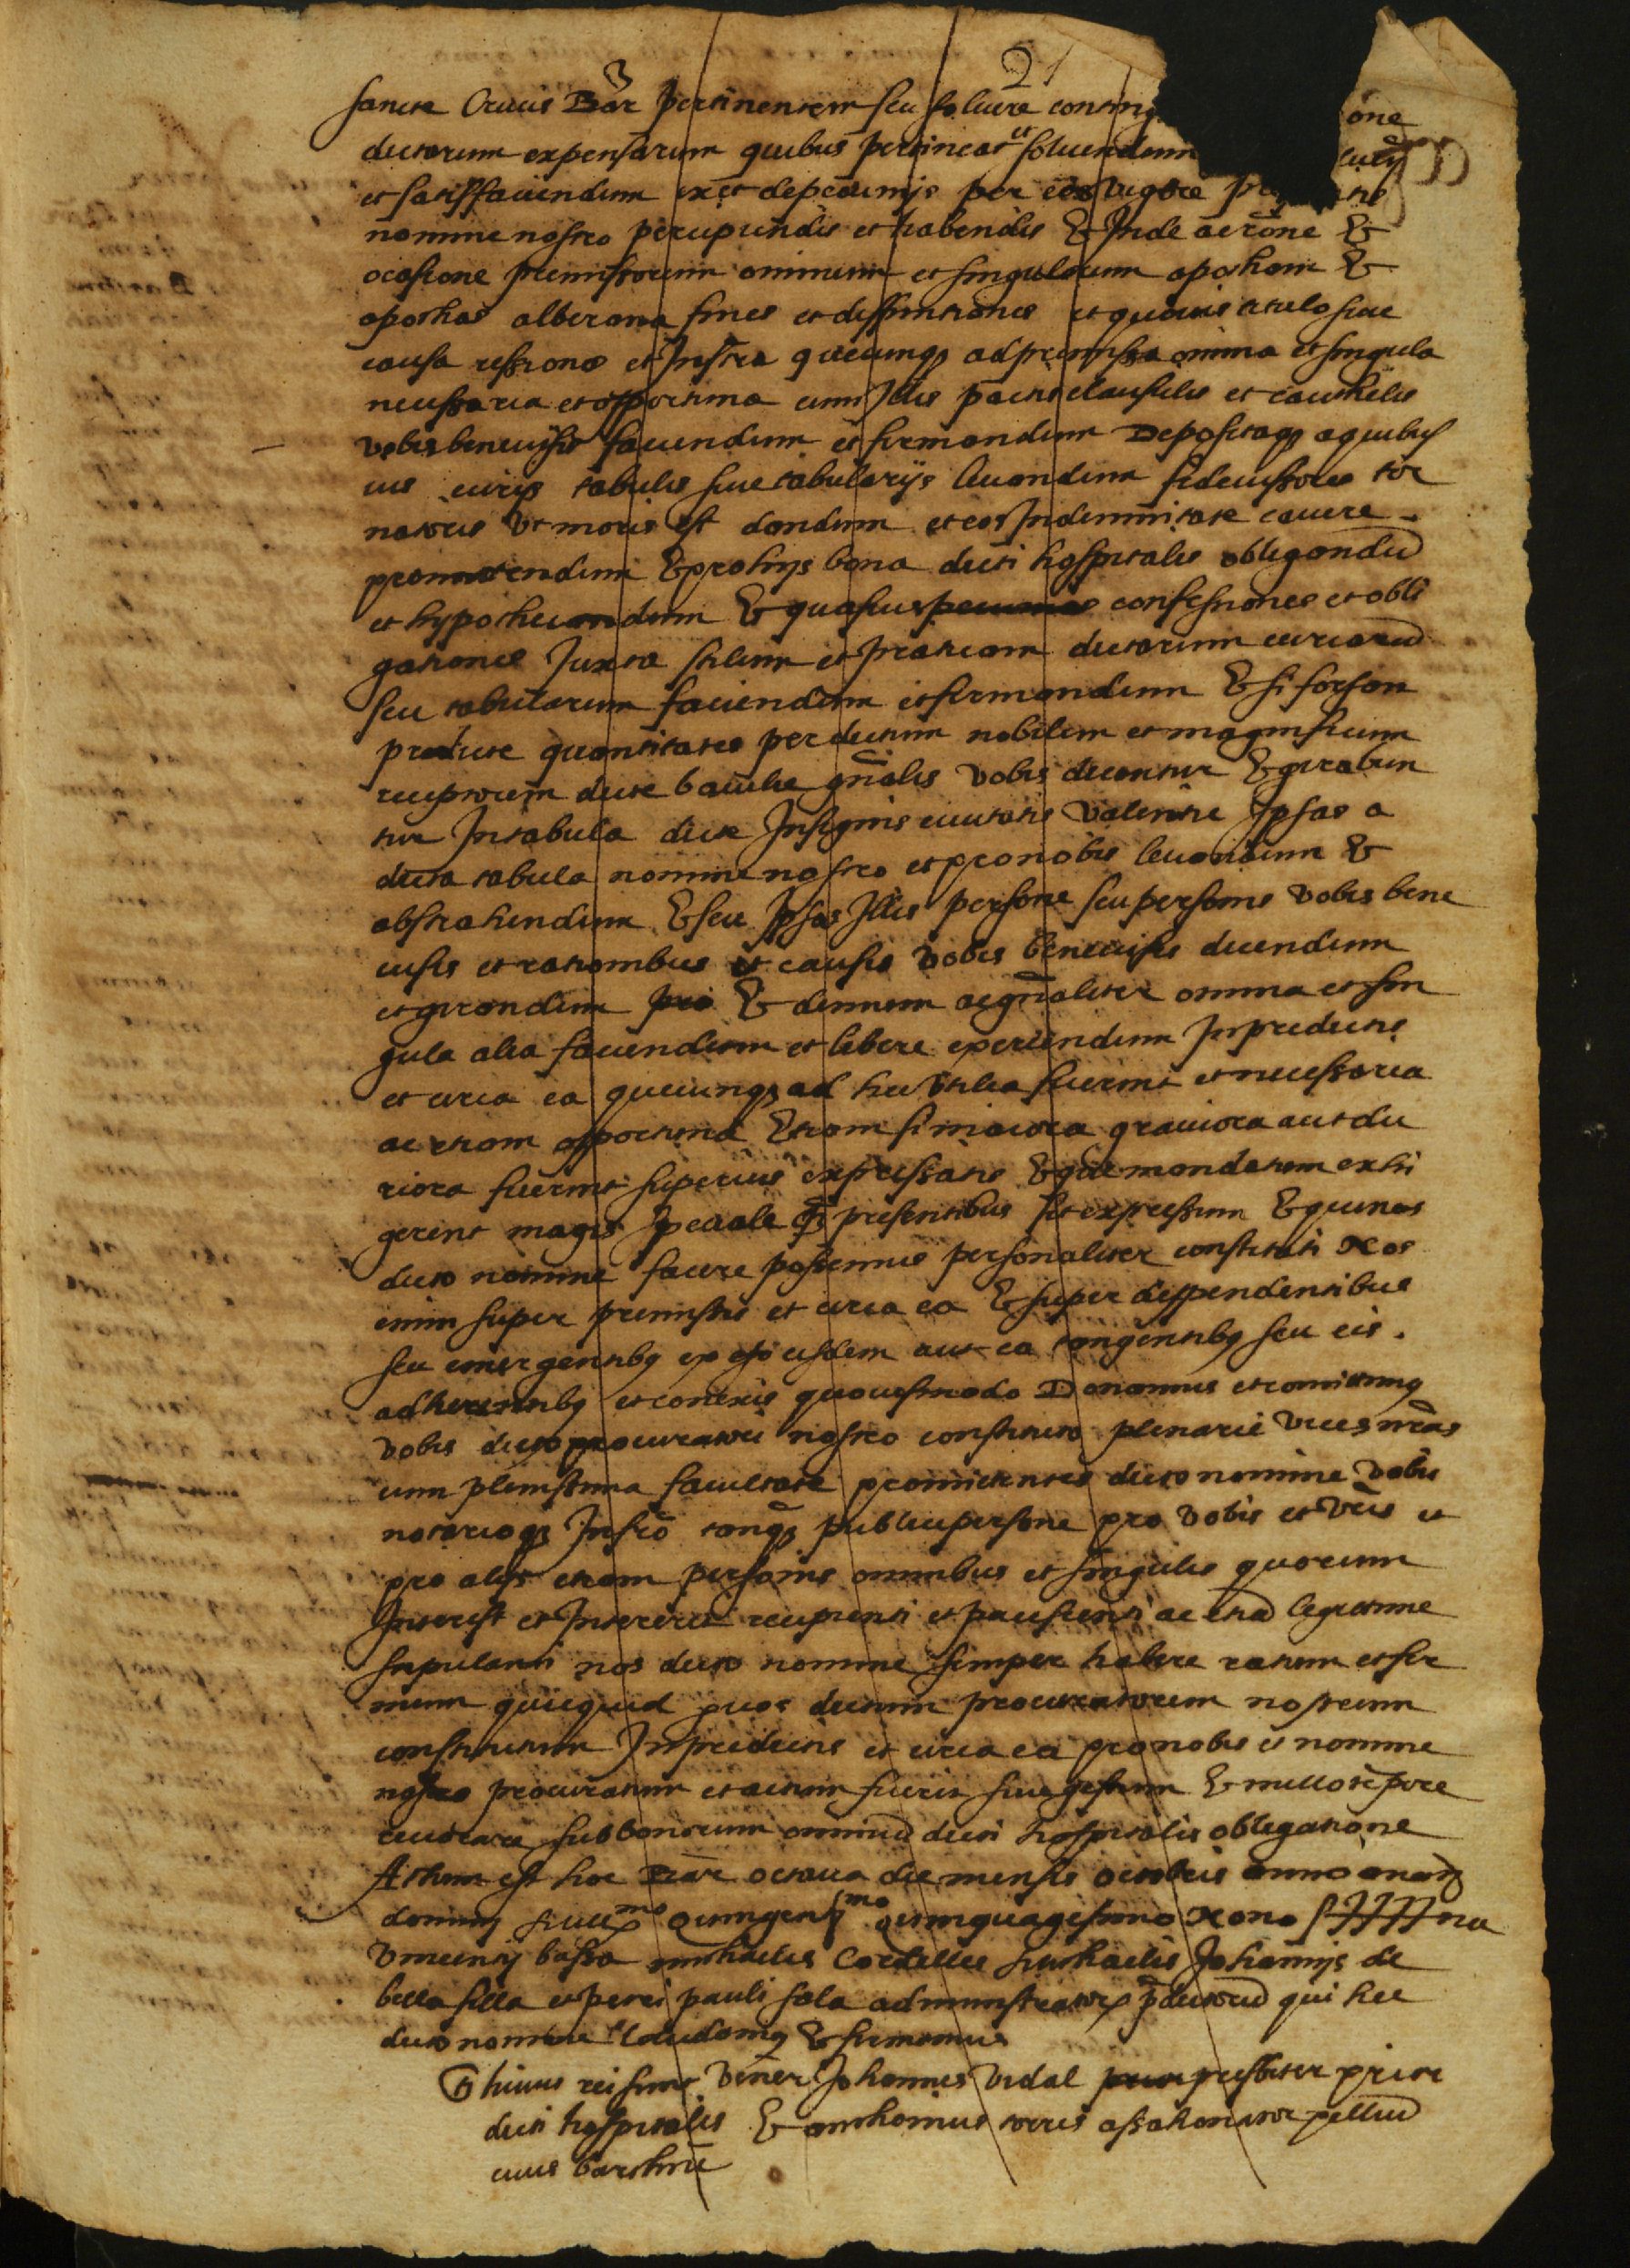 21
sancte Crucis Bar pertinentem seu soluere conting one
dictorum expensarum quibus pertineat et soluendum
et satisffaciendum ex et de pecunijs per eos vigore
nomine nostro percipiendis et habendis Et Inde ac rone Et
ocasione premissorum omnium et singulorum apocham Et
apochas albarana fines et diffinitiones et quouis titulo siue
causa cessiones et Instra quecumqȝ ad premissa omnia et singula
necessaria et opportuna cum Illis pactis clausulis et cauthelis
vobis beneuisis faciendum et firmandum Depositaqȝ a quibus
uis curijs tabulis siue tabularijs leuandum fideiussores tor
natores vt moris est dandum et eos Indemnitate cauere
promitendum Et pro hijs bona dicti hospitalis obligandu
et hypothecandum Et quasuis confessiones et obli
gationes Juxta stilum et praticam dictarum curiaru
seu tabularum faciendum et firmandum Et si forsan
predicte quantitates per dictum nobilem et magnificum
receptorem dicte baiulie gnalis vobis dicentur Et girabun
tur In tabula dicte Insignis ciuitatis Valentie Ipsas a
dicta tabula nomine nostro et pro nobis leuandum Et
abstrahendum Et seu Ipsas Illis persone seu personis vobis bene
uisis et rationibus et causis vobis beneuisis dicendum
et girandum Et demum ac gnaliter omnia et sin
gula alia faciendum et libere exercendum In predictis
et circa ea quecumqȝ ad hec vtilia fuerint et necessaria
ac etiam opportuna Etiam si maiora grauiora aut du
riora fuerint superius expressatis Et que mandatum exhi
gerent magis speciale qȝ presentibus sit expressum Et que nos
dicto nomine facere possemus personaliter constituti Nos
enim super premissis et circa ea Et super deppendentibus
seu emergentibȝ ex eisdem aut ea tangentibȝ seu eis
adherentibȝ et conexis quouismodo Donamus et comittimȝ
vobis dicto procuratori nostro constituto plenarie vices nras
cum plenissima facultate promitentes dicto nomine vobis
notarioqȝ Infro tanqȝ publice persone pro vobis et vris et
pro alijs etiam personis omnibus et singulis quorum
Interest et Intererit recipienti et paciscenti ac etia legitime
stipulanti nos dicto nomine semper habere ratum et fir
mum quicquid p vos dictum procuratorem nostrum
constitutum In predictis et circa ea pro nobis et nomine
nostro procuratum et actum fuerit siue gestum Et nullo tepore
reuocare sub bonorum omniu dicti hospitalis obligatione
Actum est hoc Bar octaua die mensis octobris anno a nat
domini Millmo Quingentmo quinquagesimo Nono Sig na
Vincentij bassa michaelis Cordelles michaelis Johannis de
bella filla et petri pauli sola administratorȝ pdictoru qui hec
dicto nomine laudamȝ Et firmamus
Ts huius rei sunt Vener Johannes Vidal presbiter prior
dicti hospitalis Et anthonius torres assahonator pelliu
ciuis barchine